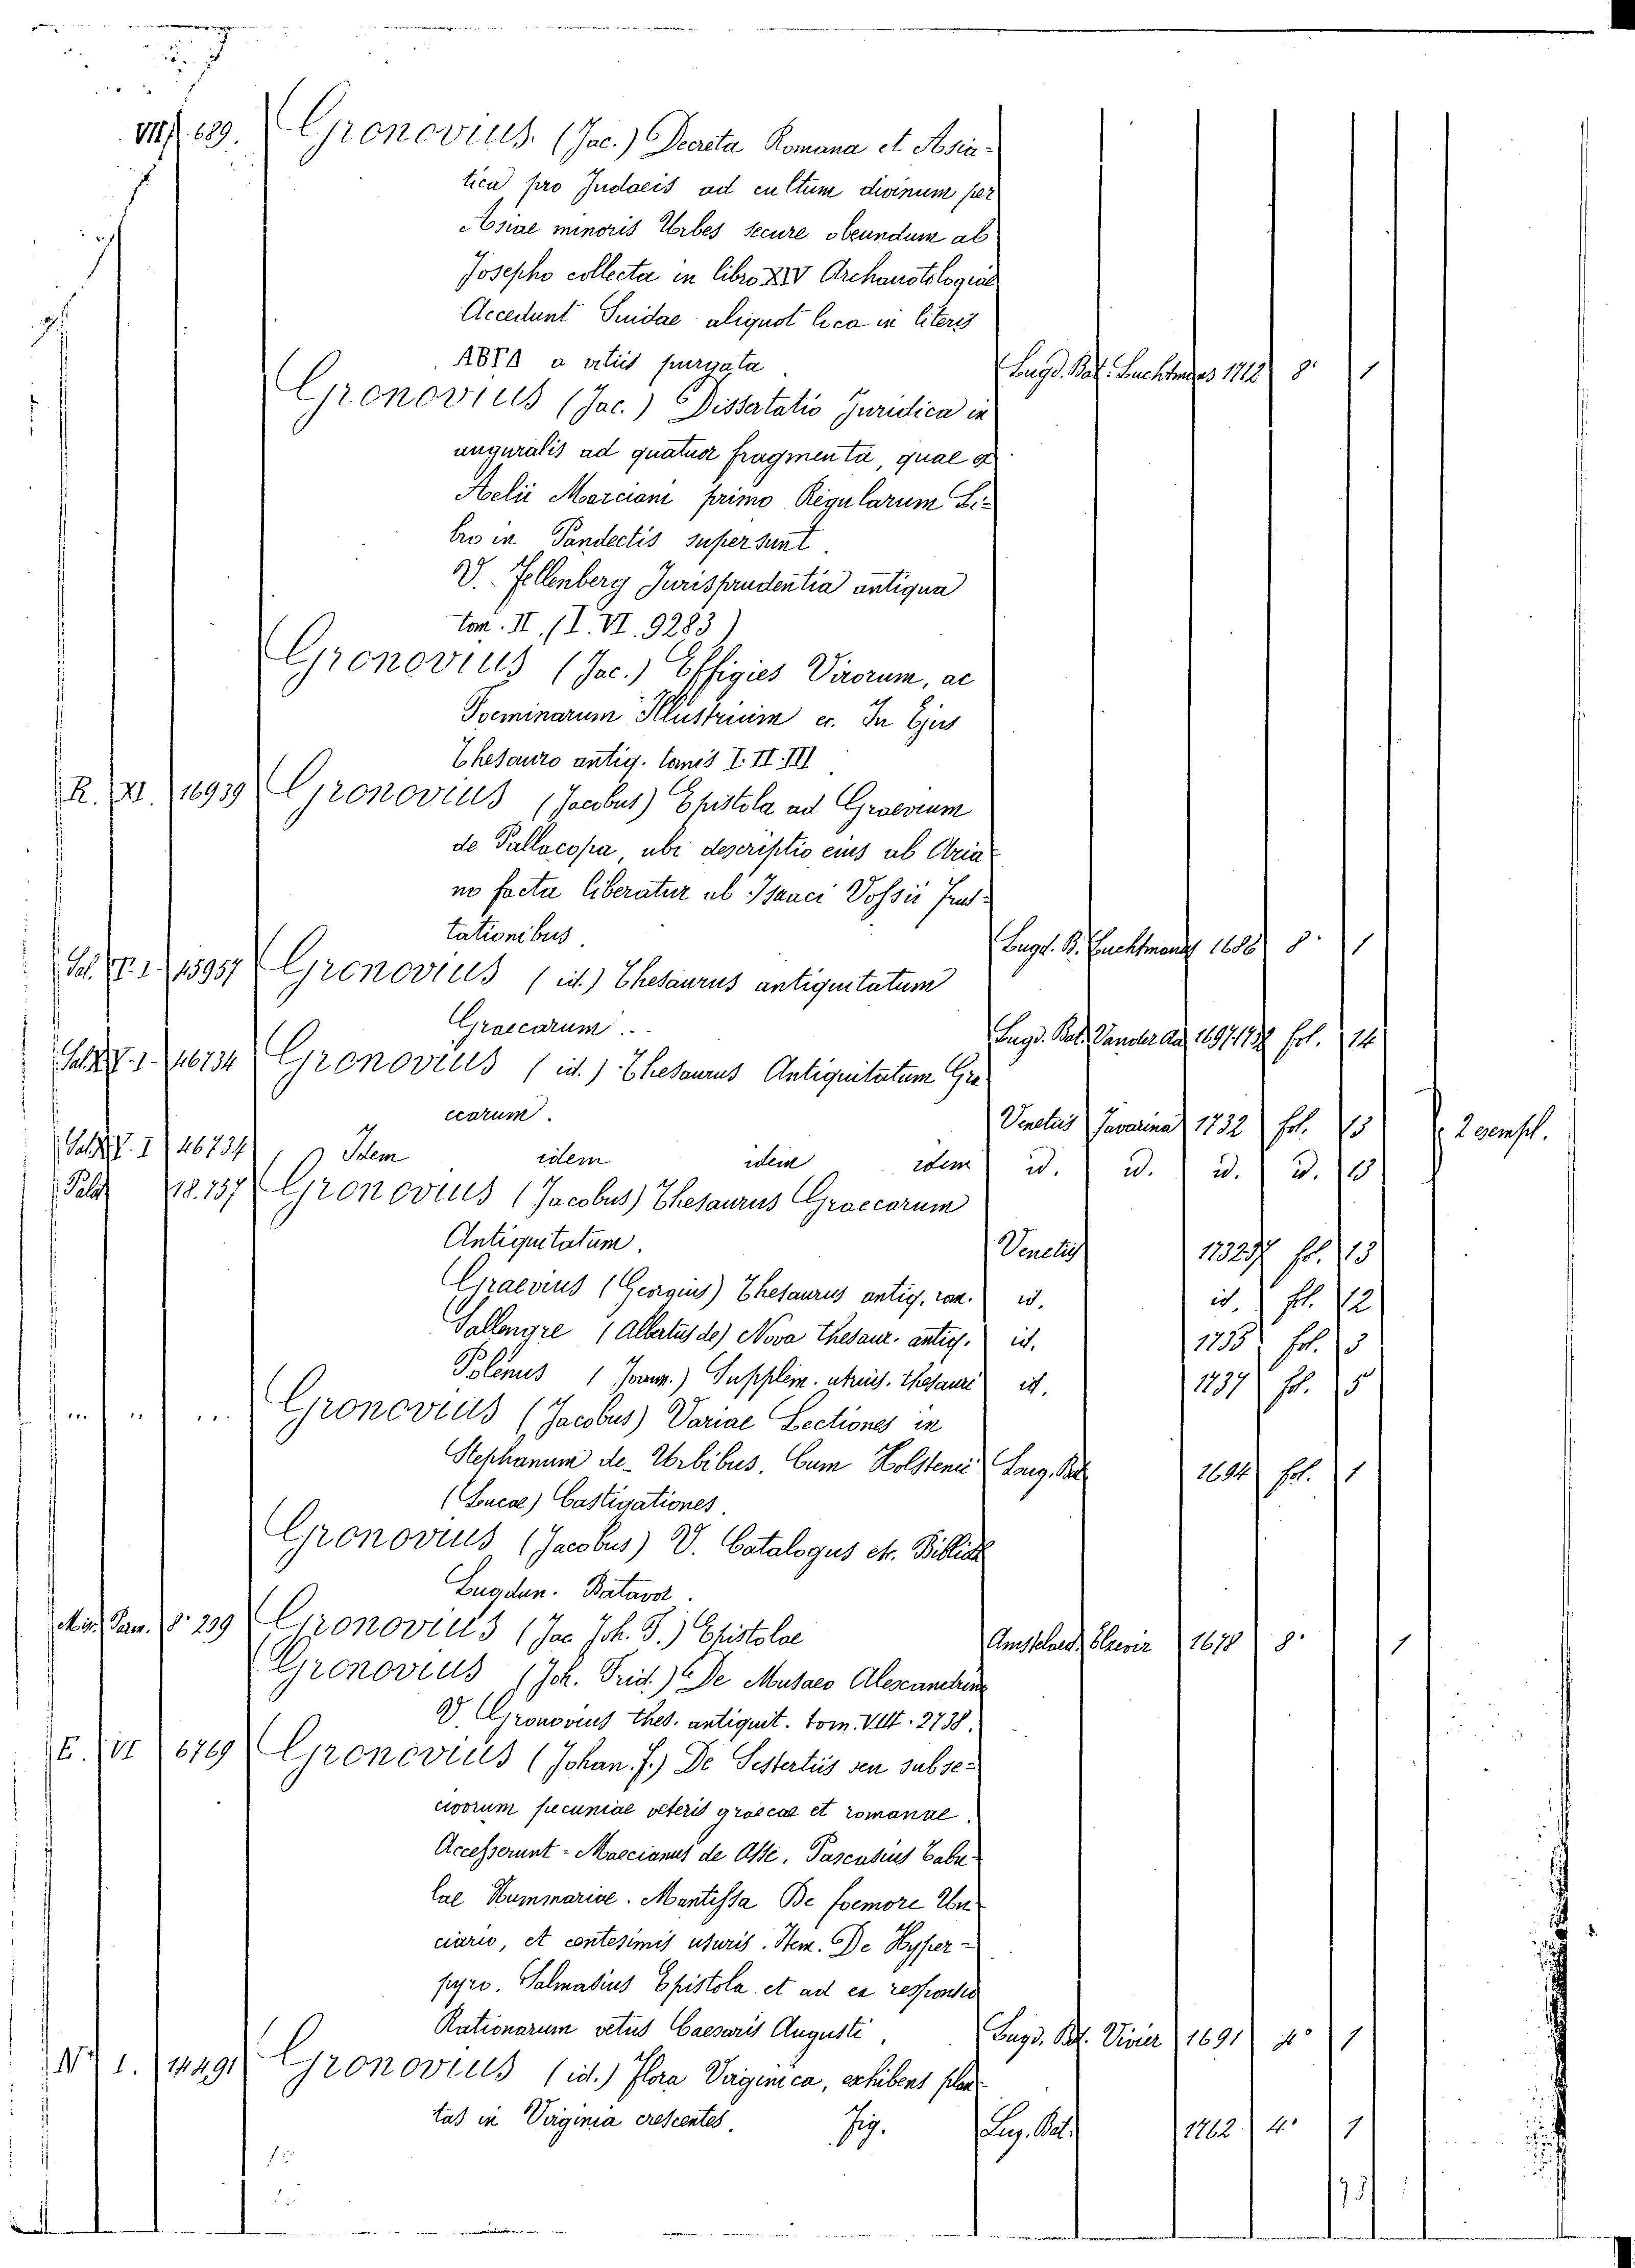 VIII 689. Gronovius (Jac.) Decreta Romana et Asia-
tica pro Judaeis ad cultum divinum per
Asiae minoris Urbes secure obeundum ab
Josepho collecta in libro XIV
Accedunt Suidae aliquot loca in literis
a vitiis purgata Lugd. Bat. Luchtmans 1712 8° 1
Gronovius (Jac.) Dissertatio Juridica in
auguralis ad quatuor fragmenta, quae
Aelii Marciani primo Regularum Li-
bro in Pandectis supersunt.
V. Fellenberg Jurisprudentia antiqua
tom. II. (I. VI. 9283)
Gronovius (Jac.) Effigies Virorum, ac
Foeminarum Illustrium In Ejus
Thesauro antiq. tomis I. II. III
R. XI. 16939 Gronovius (Jacobus) Epistola ad Graevium
de Pallacopa, ubi descriptio eius ab Aria
no facta liberatur ab Isaaci Vossii
tationibus Lugd. B. Luchtmans 1686 8° 1
15957 Gronovius (id.) Thesaurus antiquitatum
Graecarum. Lugd. Bat. Vander Aa 1697 fol. 14
46734 Gronovius (id.) Thesaurus Antiquitatum Gre
carum. Venetiis Javarina 1732 fol. 13 2 esempl.
46734 Idem idem idem idem id. id. id. id. 13
Palat 18.137 Gronovius (Jacobus) Thesaurus Graecarum
Antiquitatum. Venetiis 173237 fol. 13
Graevius (Georgius) Thesaurus antiq. rom. id. id. fol. 12
Sallengre (Albertus de) Nova Thesaur. antiq. id. 1735 fol. 3
Polenus (Joann.) Supplem. utrius. thesauri id. 1737 fol. 5
" " " Gronovius (Jacobus) Variae Lectiones in
Stephanum de Urbibus. Cum Holstenii Lug. Bat 1694 fol. 1
(Lucae) Castigationes.
Gronovius (Jacobus) V. Catalogus etc.
Lugdun. Batavor.
8° 299 Gronovius (Jac Joh. F.) Epistolae Amstelaed. Elzevir 1678 8° 1
Gronovius (Joh. Frid.) De Musaeo Alexandrino
V. Gronovius thes. antiquit. tom. VIII. 2738.
E. VI 6769 Gronovius (Johan. f.) De Sestertiis seu subse-
civorum pecuniae veteris graecae et romanae.
Accesserunt - Maecianus de Asse. Pascasius Tabu-
lae Nummariae. Mantissa De foemore Un
ciario, et centesimis usuris. Item. De Hyper-
pyro. Salmasius Epistola et ad ea responsio
Rationarum vetus Caesaris Augusti. Lugd. Bat. Vivier 1691 4° 1
N 1. 14491 Gronovius (id.) Flora Virginica, exhibens plan
tas in Virginia crescentes. Fig. Lug. Bat. 1762 4° 1